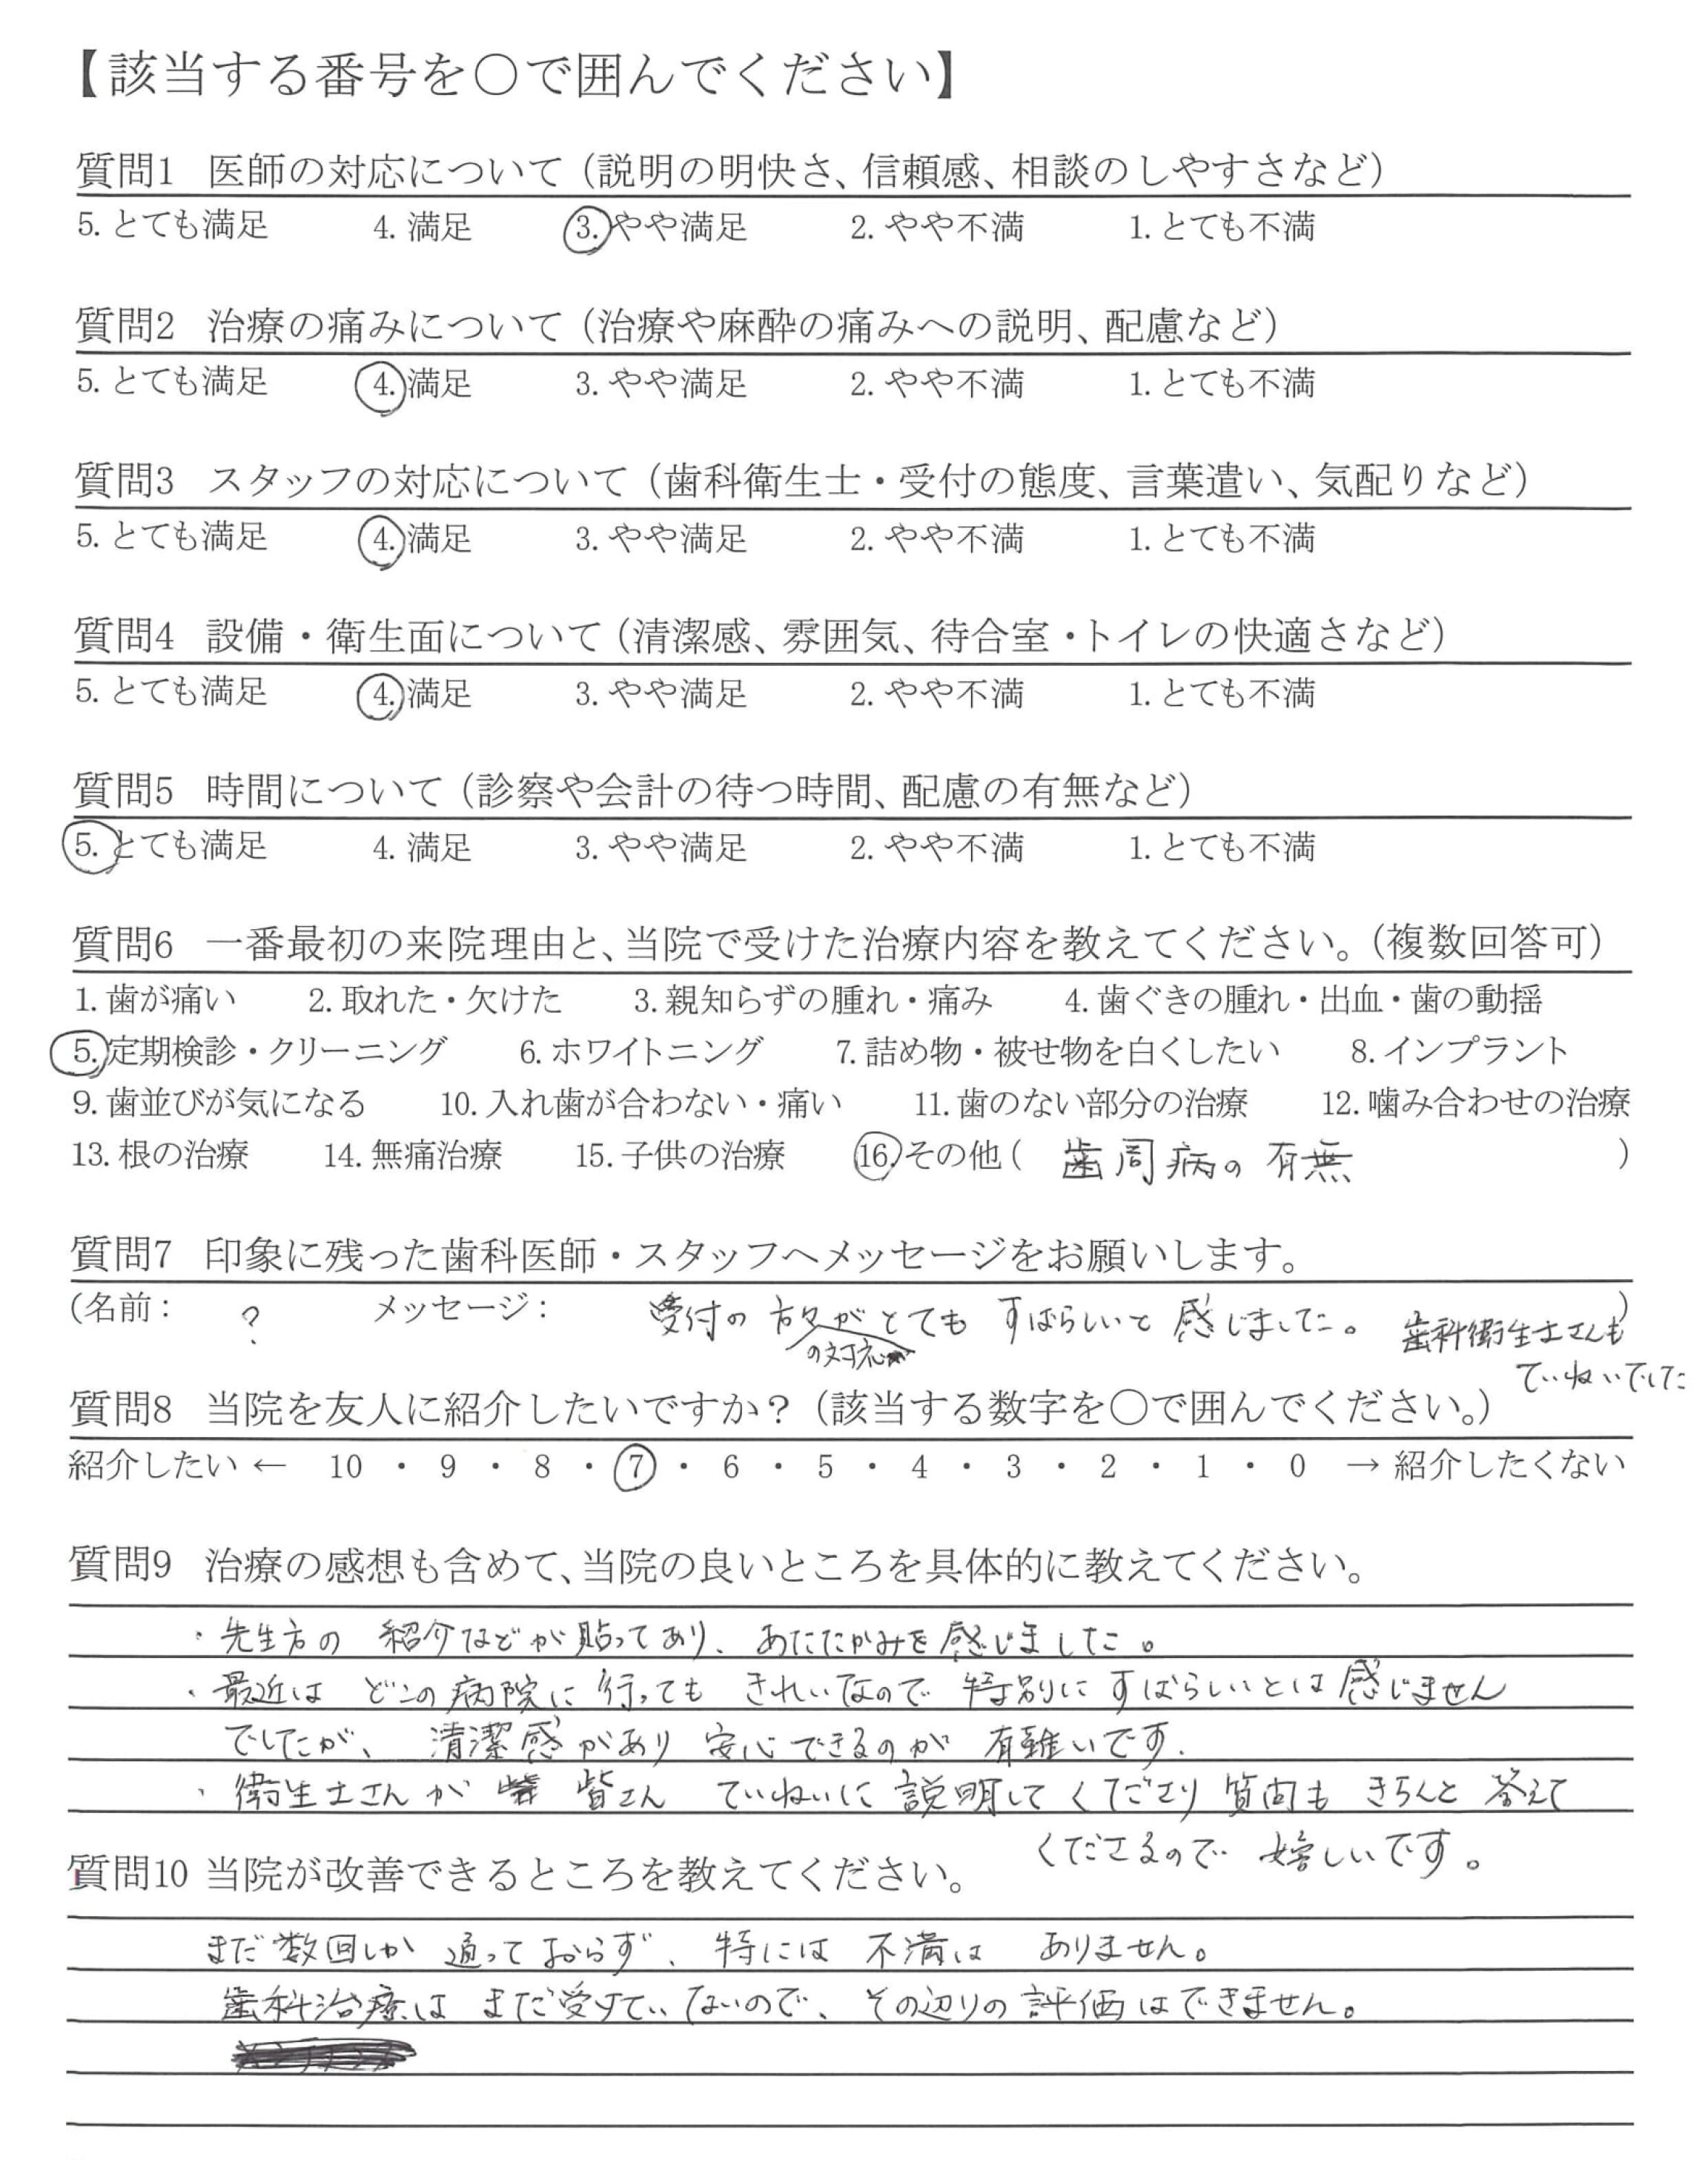 【該当する番号を〇で囲んでください】
質問1 医師の対応について（説明の明快さ、信頼感、相談のしやすさなど）
5. とても満足 4. 満足 3. やや満足 2. やや不満 1. とても不満
質問2 治療の痛みについて（治療や麻酔の痛みへの説明、配慮など）
5. とても満足 4. 満足 3. やや満足 2. やや不満 1. とても不満
質問3 スタッフの対応について（歯科衛生士・受付の態度、言葉遣い、気配りなど）
5. とても満足 4. 満足 3. やや満足 2. やや不満 1. とても不満
質問4 設備・衛生面について（清潔感、雰囲気、待合室・トイレの快適さなど）
5. とても満足 4. 満足 3. やや満足 2. やや不満 1. とても不満
質問5 時間について（診察や会計の待つ時間、配慮の有無など）
5. とても満足 4. 満足 3. やや満足 2. やや不満 1. とても不満
質問6 一番最初の来院理由と、当院で受けた治療内容を教えてください。（複数回答可）
1. 歯が痛い 2. 取れた・欠けた 3. 親知らずの腫れ・痛み 4. 歯ぐきの腫れ・出血・歯の動揺
5. 定期検診・クリーニング 6. ホワイトニング 7. 詰め物・被せ物を白くしたい 8. インプラント
9. 歯並びが気になる 10. 入れ歯が合わない・痛い 11. 歯のない部分の治療 12. 噛み合わせの治療
13. 根の治療 14. 無痛治療 15. 子供の治療 16. その他（ 歯周病の有無 ）
質問7 印象に残った歯科医師・スタッフへメッセージをお願いします。
（名前： ? メッセージ： 受付の方々がとても すばらしいと感じました。 歯科衛生士さんも ）
の対応
ていねいでした
質問8 当院を友人に紹介したいですか？（該当する数字を〇で囲んでください。）
紹介したい ← 10 ・ 9 ・ 8 ・ 7 ・ 6 ・ 5 ・ 4 ・ 3 ・ 2 ・ 1 ・ 0 → 紹介したくない
質問9 治療の感想も含めて、当院の良いところを具体的に教えてください。
・先生方の 紹介などが貼ってあり、あたたかみを感じました。
・最近は どこの病院に行っても きれいなので 特別にすばらしいとは感じません
でしたが、清潔感があり 安心できるのが 有難いです.
・衛生士さんが 皆さん ていねいに説明してくださり質問も きちんと答えて
くださるので 嬉しいです。
質問10 当院が改善できるところを教えてください。
まだ数回しか 通っておらず、特には 不満は ありません。
歯科治療は まだ受けていないので、その辺りの評価はできません。